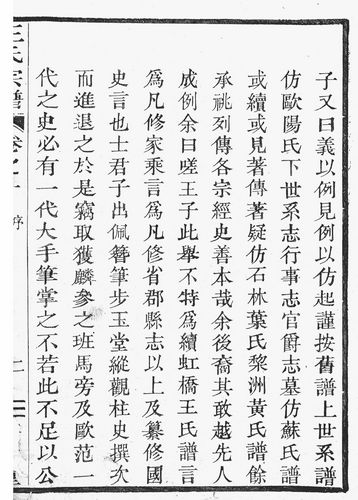 子又曰義以例見例以仿起謹按舊譜上世系譜
仿歐陽氏下世系志行事志官爵志墓仿蘇氏譜
或續或見著傳著疑仿石林葉氏黎洲黃氏譜餘
承祧列傳各宗經史善本哉余後裔其敢越先人
成例余曰嗟王子此舉不特爲續虹橋王氏譜言
爲凡修家乘言爲凡修省郡縣志以上及纂修國
史言也士君子出佩簪筆步玉堂縱觀柱史撰次
而進退之於是竊取獲麟參之班馬旁及歐范一
代之史必有一代大手筆掌之不若此不足以公
王氏宗譜 卷之一 序